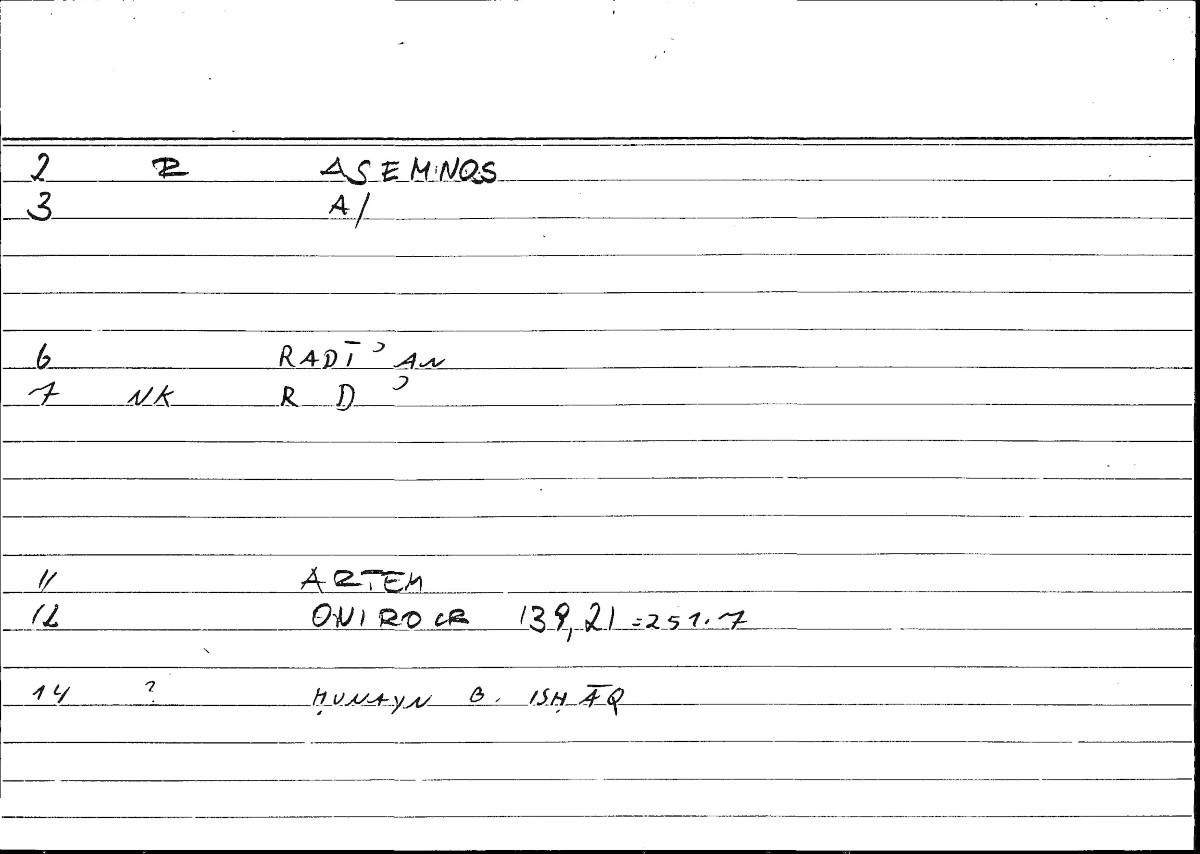 2 R ASEMNOS
3 A/
6 RADĪʾAN
7 NK R D ʾ
11 ARTEM
12 ONIROCR 139,21 =251.7
14 ? ḤUNAYN B. ISḤĀQ